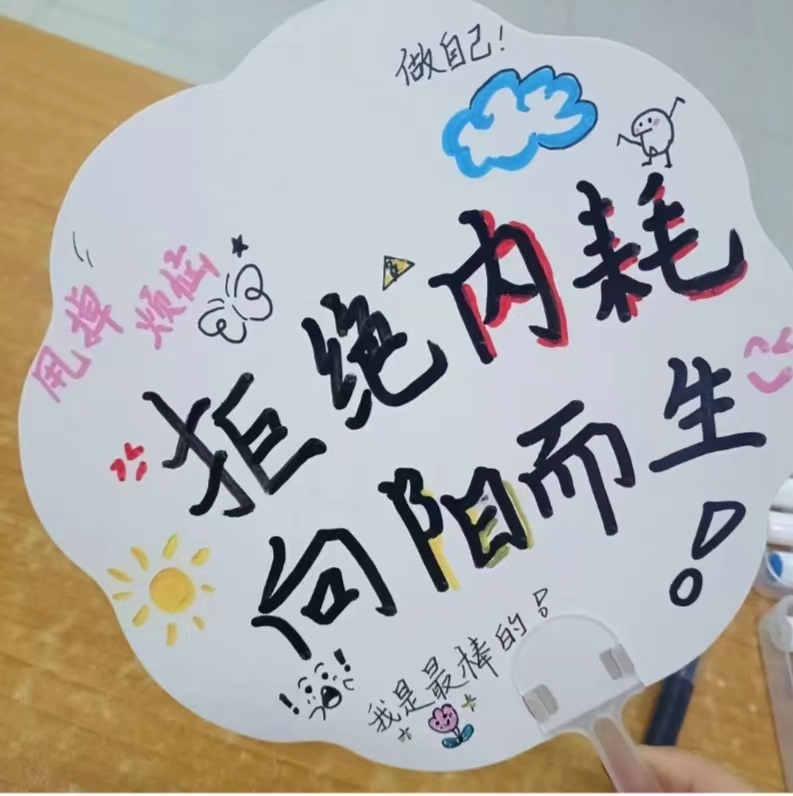 做自己!
甩掉 烦恼
拒绝内耗
向阳而生!
我是最棒的!